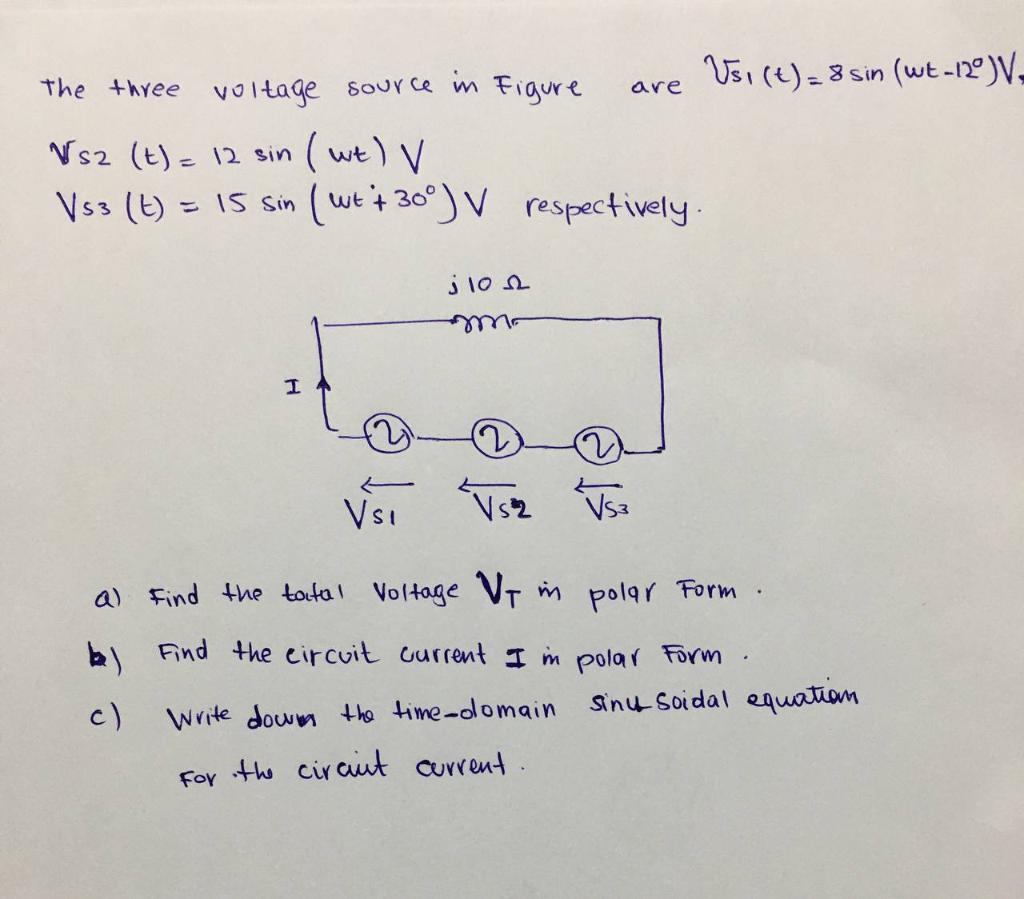 The three voltage source in Figure are Vs1 (t) = 8 sin (wt -12°)V,
Vs2 (t) = 12 sin (wt) V
Vs3 (t) = 15 sin (wt + 30°) V respectively.
j10 Ω
I
Vs1 Vs2 Vs3
a) Find the total Voltage VT in polar Form .
b) Find the circuit current I in polar Form .
c) Write down the time-domain sinusoidal equation
For the circuit current .